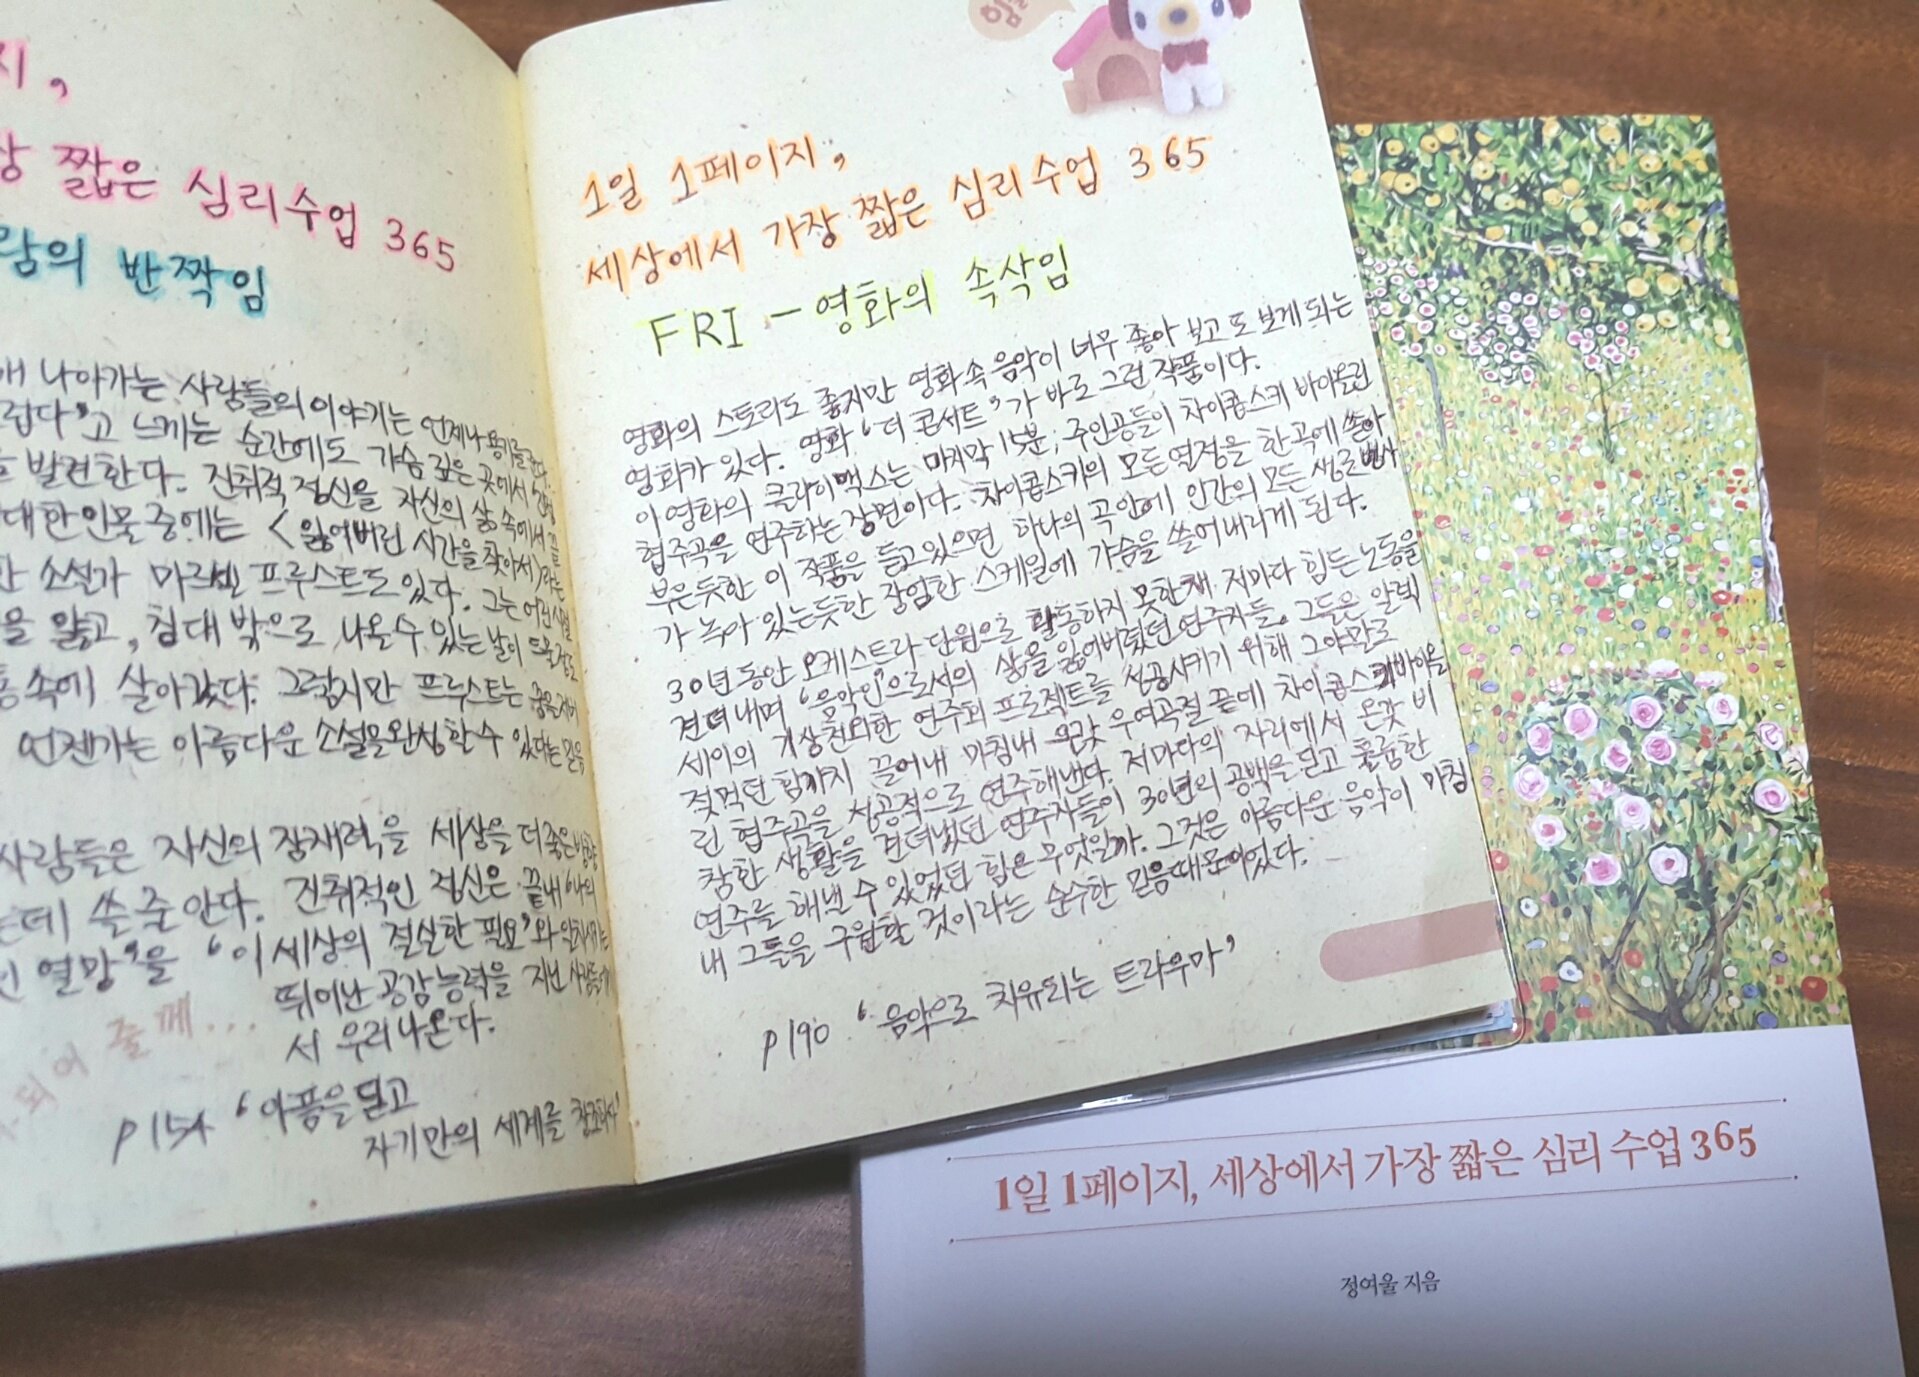 지,
상 짧은 심리수업 365
람의 반짝임
해 나아가는 사람들의 이야기는 언제나 용기를 준다.
럽다’고 느끼는 순간에도 가슴 깊은 곳에서
발견한다. 진취적 정신을 자신의 삶 속에서
대한 인물 중에는 <잃어버린 시간을 찾아서>라는
소설가 마르셀 프루스트도 있다. 그는 어린 시절
을 앓고, 침대 밖으로 나올 수 있는 날이 드물 정도
통속에 살아갔다. 그렇지만 프루스트는
언젠가는 아름다운 소설을 완성할 수 있다는 믿음
사람들은 자신의 잠재력을 세상을 더 좋은 방향
는데 쓸 줄 안다. 진취적인 정신은 끝내 ‘나의
인 열망’을 ‘이 세상의 절실한 필요’와 일치시키는
뛰어난 공감능력을 지닌 사람들에게
서 우러나온다.
되어 줄께...
p154 ‘아픔을 딛고
자기만의 세계를 창조하다’
1일 1페이지,
세상에서 가장 짧은 심리수업 365
FRI - 영화의 속삭임
영화의 스토리도 좋지만 영화 속 음악이 너무 좋아 보고 또 보게 되는
영화가 있다. 영화 ‘더 콘서트’가 바로 그런 작품이다.
이 영화의 클라이맥스는 마지막 15분, 주인공들이 차이콥스키 바이올린
협주곡을 연주하는 장면이다. 차이콥스키의 모든 열정을 한 곡에 쏟아
부은듯한 이 작품을 듣고 있으면 하나의 곡 안에 인간의 모든 생로병사
가 녹아 있는듯한 장엄한 스케일에 가슴을 쓸어내리게 된다.
30년 동안 오케스트라 단원으로 활동하지 못한채 저마다 힘든 노동을
견뎌내며 ‘음악인’으로서의 삶을 잃어버렸던 연주자들. 그들은 알렉
세이의 기상천외한 연주회 프로젝트를 성공시키기 위해 그야말로
젖먹던 힘까지 끌어내 마침내 온갖 우여곡절 끝에 차이콥스키 바이올
린 협주곡을 성공적으로 연주해낸다. 저마다의 자리에서 온갖 비
참한 생활을 견뎌냈던 연주자들이 30년의 공백을 딛고 훌륭한
연주를 해낼 수 있었던 힘은 무엇일까. 그것은 아름다운 음악이 마침
내 그들을 구원할 것이라는 순수한 믿음 때문이었다.
p190 ‘음악으로 치유되는 트라우마’
1일 1페이지, 세상에서 가장 짧은 심리 수업 365
정여울 지음